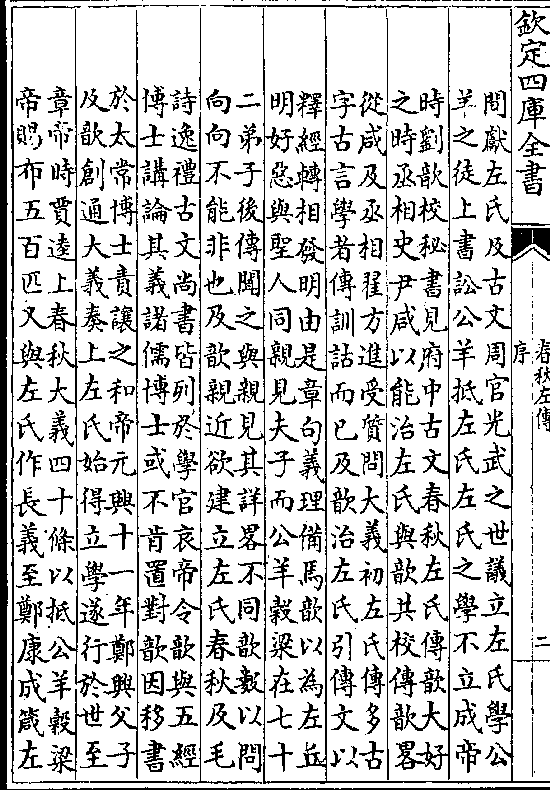 欽定四庫全書
春秋左傳
序
二
問獻左氏及古文周官光武之世議立左氏學公
羊之徒上書訟公羊抵左氏左氏之學不立成帝
時劉歆校秘書見府中古文春秋左氏傳歆大好
之時丞相史尹咸以能治左氏與歆共校傳歆畧
從咸及丞相翟方進受質問大義初左氏傳多古
字古言學者傳訓詁而已及歆治左氏引傳文以
釋經轉相發明由是章句義理備焉歆以為左丘
明好惡與聖人同親見夫子而公羊穀梁在七十
二弟子後傳聞之與親見其詳畧不同歆數以問
向向不能非也及歆親近欲建立左氏春秋及毛
詩逸禮古文尚書皆列於學官哀帝令歆與五經
博士講論其義諸儒博士或不肯置對歆因移書
於太常博士責讓之和帝元興十一年鄭興父子
及歆創通大義奏上左氏始得立學遂行於世至
章帝時賈逵上春秋大義四十條以抵公羊穀梁
帝賜布五百匹又與左氏作長義至鄭康成箴左